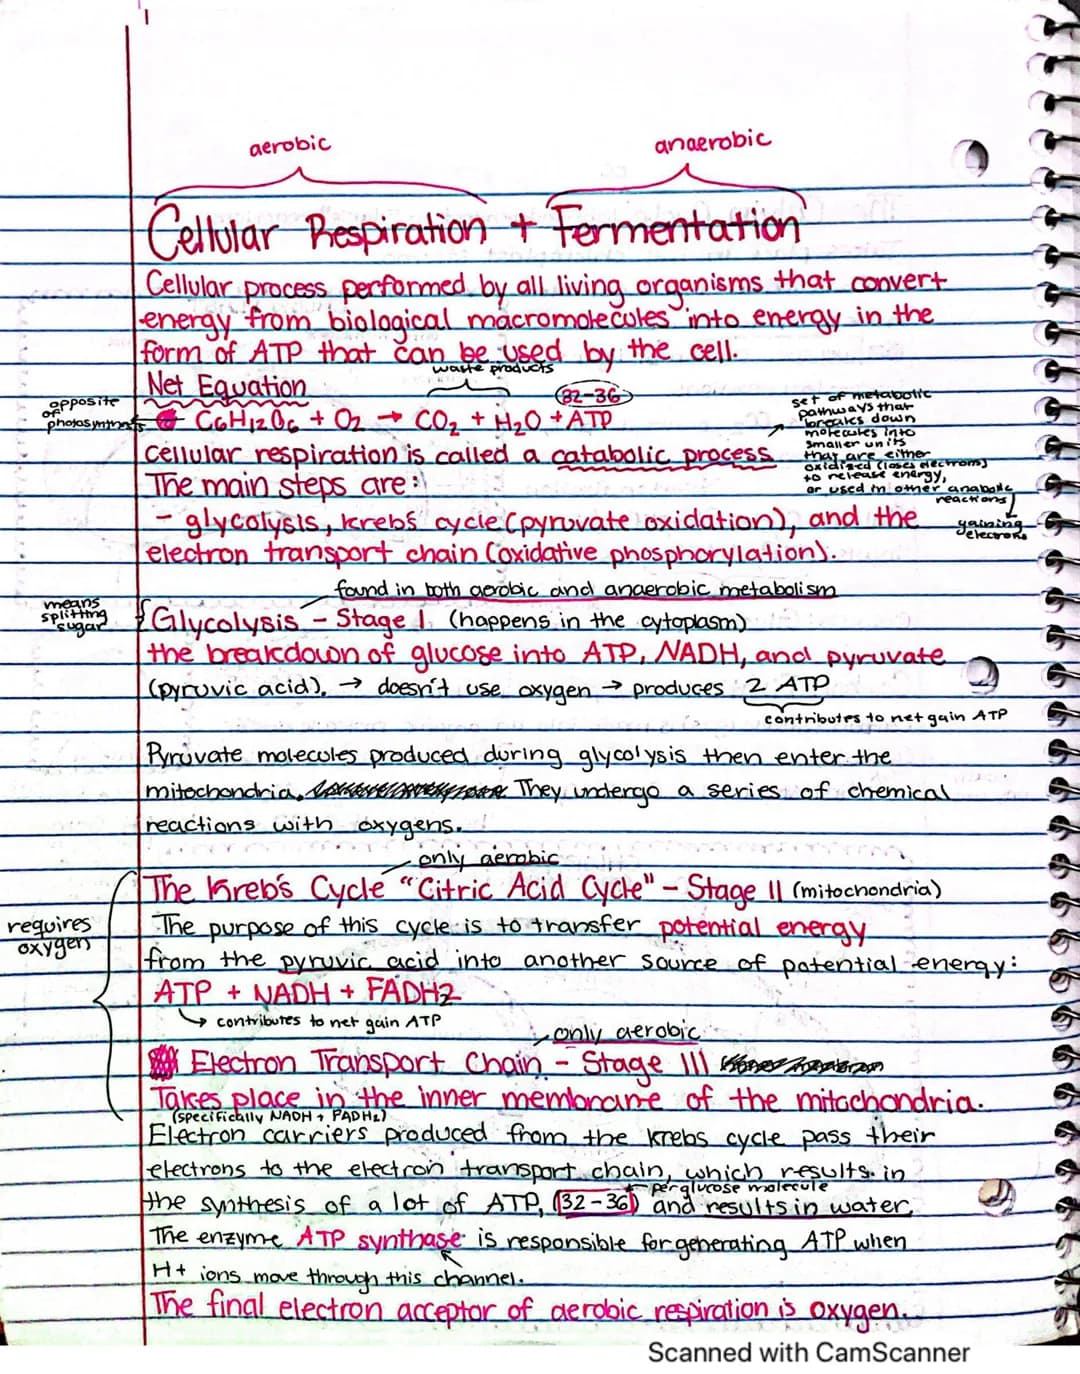 aerobic
anaerobic
Cellular Respiration + Fermentation
Cellular process performed by all living organisms that convert
energy from biological macromolecules into energy in the
form of ATP that can be used by the cell.
waste products
Net Equation
32-36
opposite
of
photosynthesis
C6H12O6 + O2 → CO2 + H2O + ATP
set of metabolic
pathways that
breaks down
molecules into
smaller units
that are either
oxidized (loses electrons)
to release energy,
or used in other anabolic
reactions
gaining
electrons
Cellular respiration is called a catabolic process
The main steps are:
- glycolysis, kreb's cycle (pyruvate oxidation), and the
electron transport chain (oxidative phosphorylation).
found in both aerobic and anaerobic metabolism
means
splitting
sugar
Glycolysis - Stage I (happens in the cytoplasm)
the breakdown of glucose into ATP, NADH, and pyruvate
(pyruvic acid). → doesn't use oxygen → produces 2 ATP
contributes to net gain ATP
Pyruvate molecules produced during glycolysis then enter the
mitochondria. They undergo a series of chemical
reactions with oxygens.
only aerobic
The Kreb's Cycle "Citric Acid Cycle" - Stage II (mitochondria)
requires
oxygen
The purpose of this cycle is to transfer potential energy
from the pyruvic acid into another source of potential energy:
ATP + NADH + FADH2
↳ contributes to net gain ATP
only aerobic
Electron Transport Chain - Stage III
Takes place in the inner membrane of the mitochondria.
(specifically NADH + FADH2)
Electron carriers produced from the krebs cycle pass their
electrons to the electron transport chain, which results in
← per glucose molecule
the synthesis of a lot of ATP, (32-36) and results in water.
The enzyme ATP synthase is responsible for generating ATP when
H+ ions move through this channel.
The final electron acceptor of aerobic respiration is oxygen.
Scanned with CamScanner